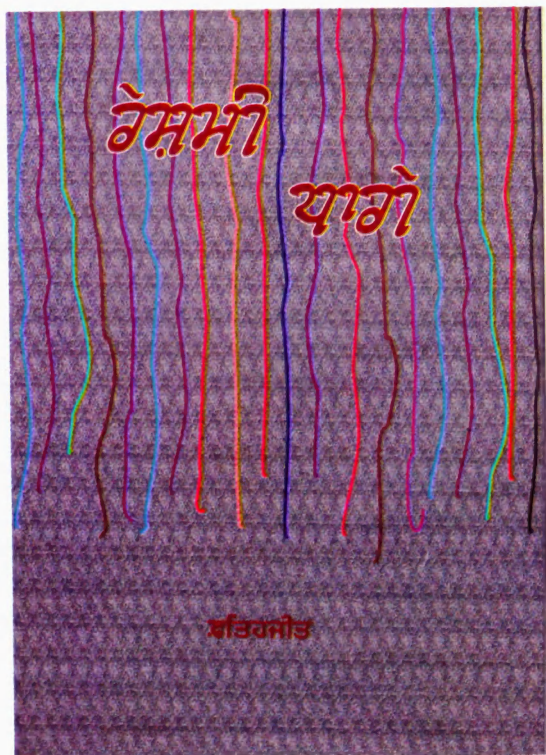 ਰੇਸ਼ਮੀ
ਧਾਗੇ
ਫ਼ਤਿਹਜੀਤ